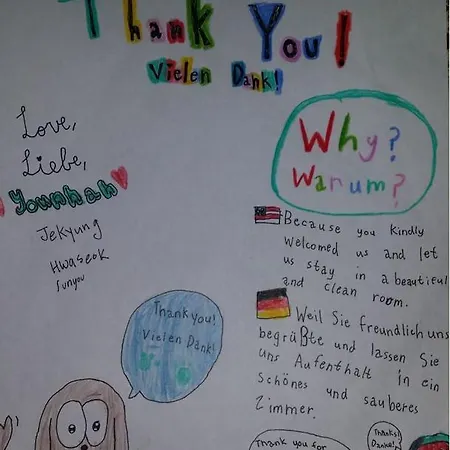 Thank You!
Vielen Dank!
Love,
Liebe,
Younhah
Jekyung
Hwaseok
Sunyou
Why?
Warum?
Because you kindly
welcomed us and let
us stay in a beautiful
and clean room.
Weil Sie freundlich uns
begrüßte und lassen Sie
uns Aufenthalt in ein
schönes und sauberes
Zimmer.
Thank you!
Vielen Dank!
Thanks!
Danke!
Thank you for